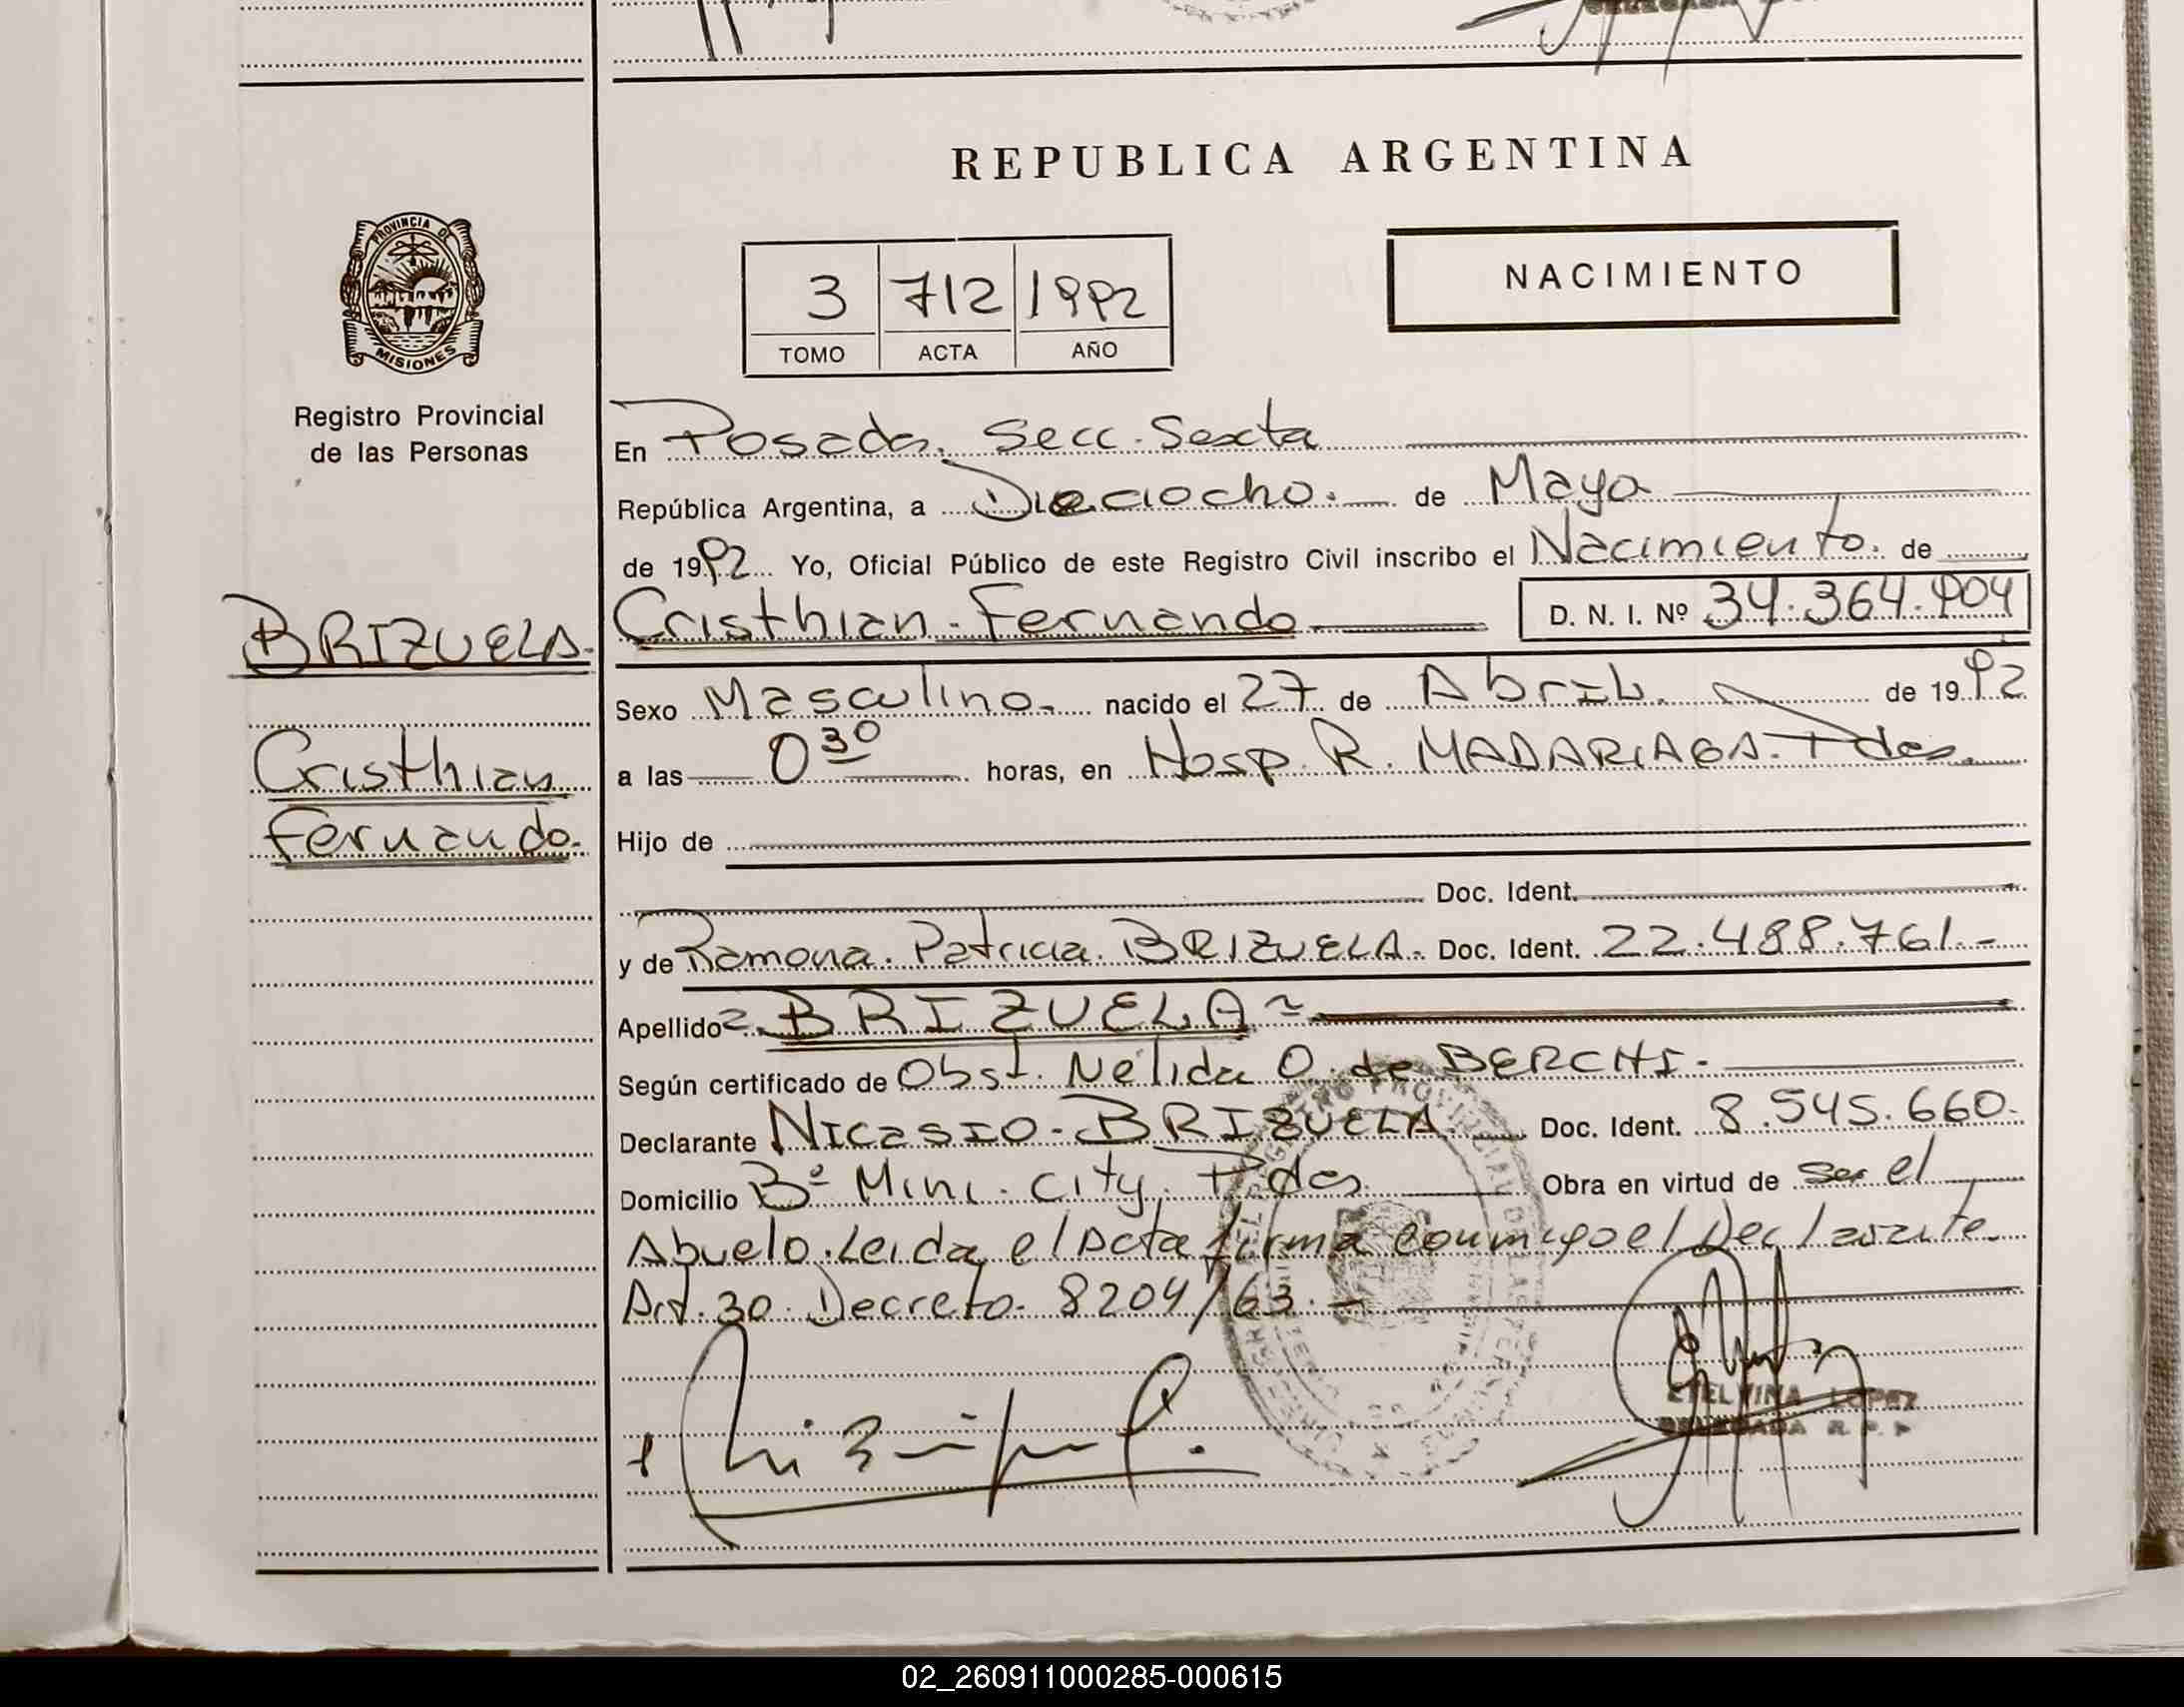 REPUBLICA ARGENTINA
PROVINCIA DE
MISIONES
3 712 1992
TOMO ACTA AÑO
NACIMIENTO
Registro Provincial
de las Personas
En Posadas. Secc. Sexta
República Argentina, a Dieciocho. de Mayo
de 1992 Yo, Oficial Público de este Registro Civil inscribo el Nacimiento. de
BRIZUELA. Cristhian. Fernando D. N. I. Nº 34.364.904
Sexo Masculino. nacido el 27 de Abril. de 1992
Cristhian a las 0 30 horas, en Hosp. R. MADARIAGA. Pdas.
Fernando. Hijo de
Doc. Ident.
y de Ramona. Patricia. BRIZUELA. Doc. Ident. 22.488.761.-
Apellido BRIZUELA
Según certificado de Obst. Nélida O. de BERCHI.
Declarante Nicasio. BRIZUELA. Doc. Ident. 8.545.660.
Domicilio Bº Mini. City. Pdas Obra en virtud de ser el
Abuelo. Leida el Acta firma conmigo el Declarante.
Art. 30. Decreto. 8204/63.-
ETELVINA LOPEZ
DELEGADA R. P. P
02_260911000285-000615